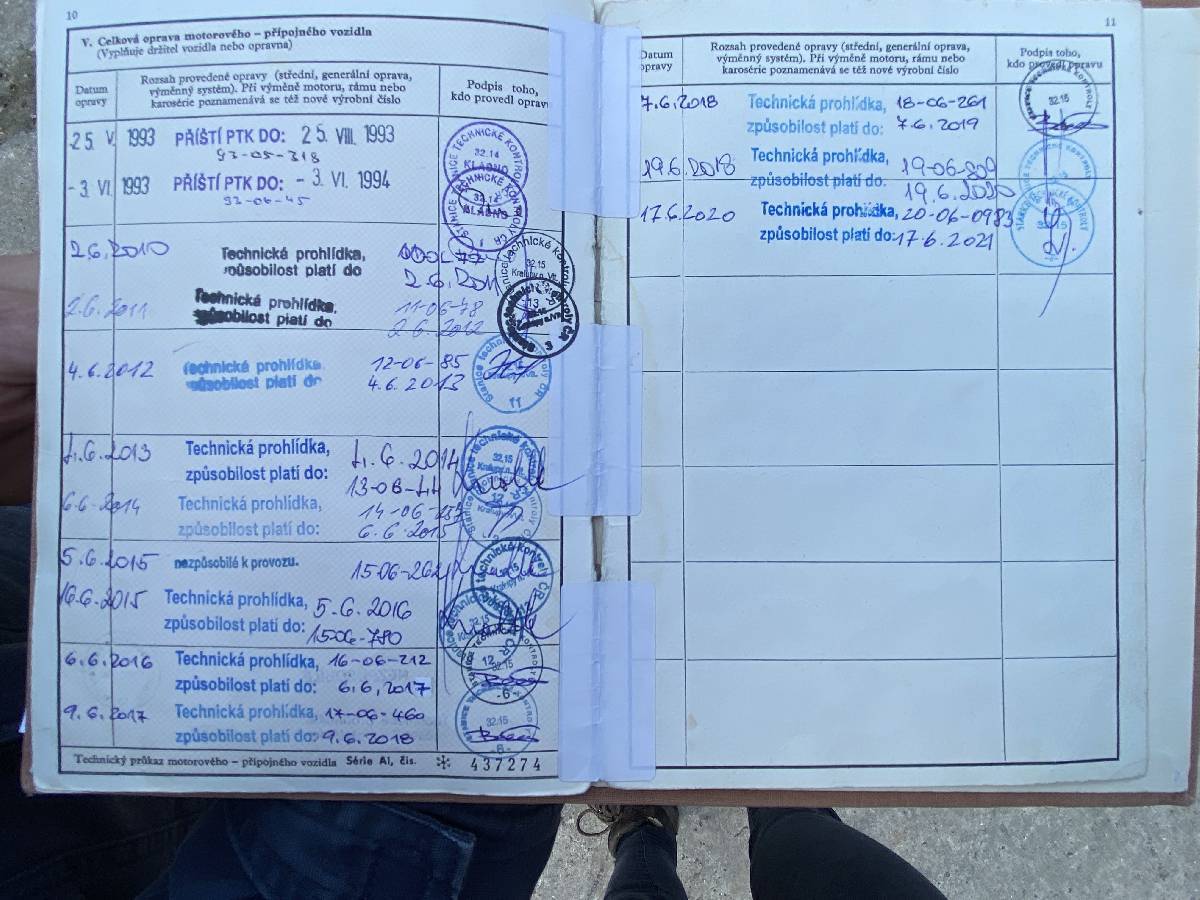 10
V. Celková oprava motorového – přípojného vozidla
(Vyplňuje držitel vozidla nebo opravna)
Datum opravy
Rozsah provedené opravy (střední, generální oprava, výměnný systém). Při výměně motoru, rámu nebo karosérie poznamenává se též nové výrobní číslo
Podpis toho, kdo provedl opravu
25 V. 1993 PŘÍŠTÍ PTK DO: 25 VIII. 1993
93-05-318
- 3 VI. 1993 PŘÍŠTÍ PTK DO: - 3 VI. 1994
93-06-45
STANICE TECHNICKÉ KONTROLY ČR
32.14
KLADNO
2.6.2010 Technická prohlídka,
způsobilost platí do 2.6.2011
32.15
Kralupy n. Vlt.
2.6.2011 Technická prohlídka, 11-06-78
způsobilost platí do 2.6.2012
4.6.2012 technická prohlídka 12-06-85
způsobilost platí do 4.6.2013
11
.6.2013 Technická prohlídka,
způsobilost platí do: .6.2014
6.6.2014 Technická prohlídka, 14-06-
způsobilost platí do: 6.6.2015
5.6.2015 nezpůsobilé k provozu. 15-06-262
16.6.2015 Technická prohlídka, 5.6.2016
způsobilost platí do: 15-06-780
6.6.2016 Technická prohlídka, 16-06-212
způsobilost platí do: 6.6.2017
9.6.2017 Technická prohlídka, 17-06-460
způsobilost platí do: 9.6.2018
32.15
Technický průkaz motorového – přípojného vozidla Série AI, čis. 437274
11
Datum opravy
Rozsah provedené opravy (střední, generální oprava, výměnný systém). Při výměně motoru, rámu nebo karosérie poznamenává se též nové výrobní číslo
Podpis toho, kdo provedl opravu
7.6.2018 Technická prohlídka, 18-06-261
způsobilost platí do: 7.6.2019
32.15
19.6.2018 Technická prohlídka, 19-06-
způsobilost platí do: 19.6.2020
17.6.2020 Technická prohlídka, 20-06-0983
způsobilost platí do: 17.6.2021